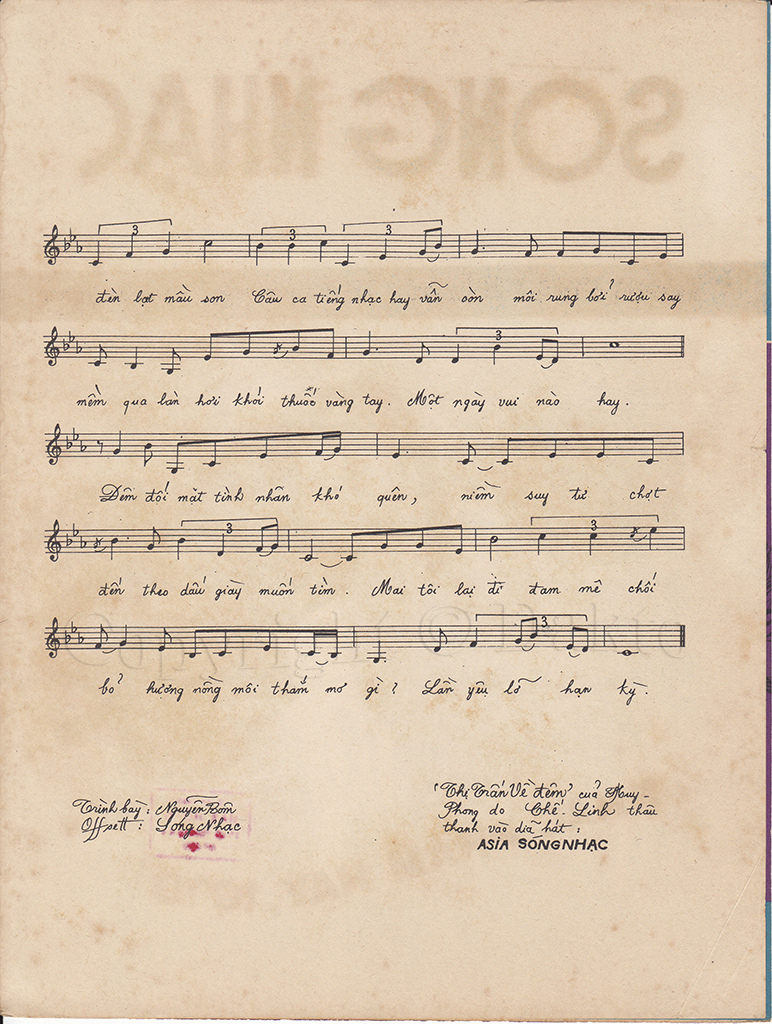 SÓNG NHẠC
đèn bạt mầu son Câu ca tiếng nhạc hay vẫn còn môi rung bởi rượu say
mềm qua làn hơi khói thuốc vàng tay. Một ngày vui nào hay.
Đêm đôi mắt tình nhân khó quên, niềm suy tư chợt
đến theo dấu giày muốn tìm. Mai tôi lại đi đam mê chối
bỏ hương nồng môi thắm mơ gì? Lần yêu lỡ hạn kỳ.
Trình bày: Nguyễn Bôn
Offsett: Sóng Nhạc
"Thị Trấn Về đêm" của Huy-
Phong do Chế-Linh thâu
thanh vào dĩa hát:
ASIA SÓNGNHẠC